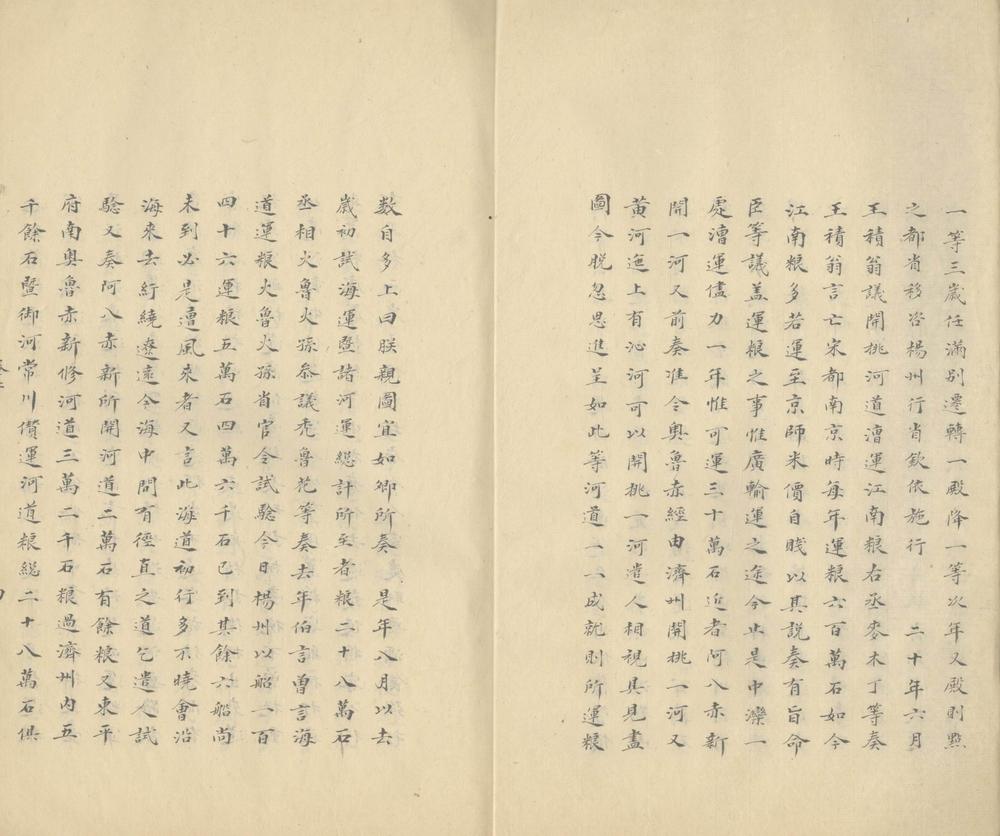 一等三歲任滿別遷轉一殿降一等次年又殿則黜
之都省移咨楊州行省欽依施行　二十年六月
王積翁議開挑河道漕運江南粮右丞麥木丁等奏
王積翁言亡宋都南京時每年運粮六百萬石如今
江南粮多若運至京師米價自賤以其説奏有旨命
臣等議盖運粮之事惟廣輸運之途今止是中灤一
處漕運儘力一年惟可運三十萬石近者阿八赤新
開一河又前奏准令奥魯赤經由濟州開挑一河又
黄河迤上有沁河可以開挑一河遣人相視具見畫
圖今脱忽思進呈如此等河道一一成就則所運粮
数自多上曰朕親圖宜如卿所奏　是年八月以去
歲初試海運暨諸河運総計所至者粮二十八萬石
丞相火魯火孫叅議秃魯花等奏去年伯言曽言海
道運粮火魯火孫省官令試驗今日楊州以船一百
四十六運粮五萬石四萬六千石已到其餘六船尚
未到必是遭風來者又言此海道初行多不曉會沿
海來去紆繞遼遠今海中間有徑直之道乞遣人試
驗又奏阿八赤新所開河道二萬石有餘粮又東平
府南奥魯赤新修河道三萬二千石粮過濟州内五
千餘石暨御河常川儹運河道粮総二十八萬石俱